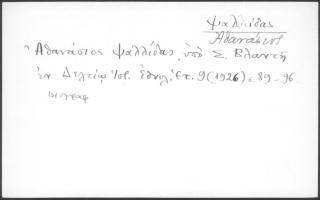 Ψαλλίδας
Ἀθανάσιος
Ἀθανάσιος Ψαλλίδας, ὑπὸ Σ. Βλαντῆ
ἐν Δελτίῳ Ἱστ. Ἐθνολ. Ἑτ. 9 (1926) σ 89-96
βιογραφ